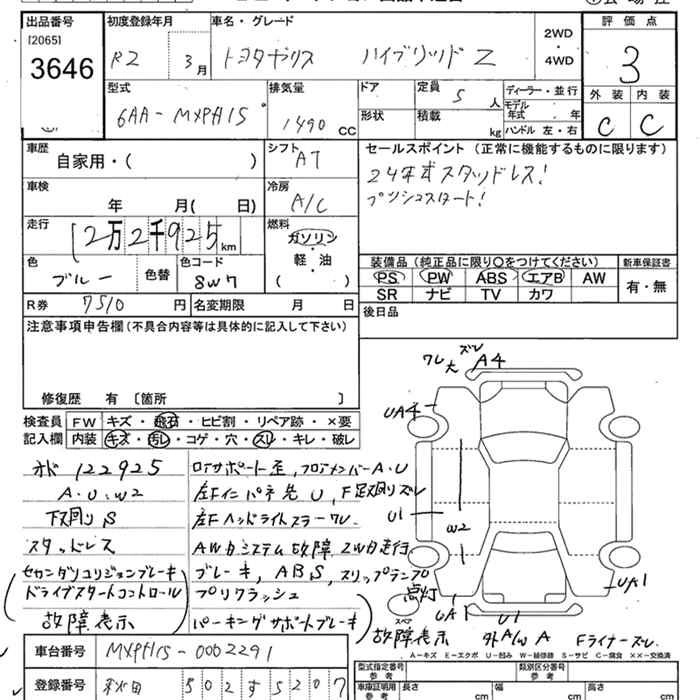 出品番号 初度登録年月 車名・グレード 評価点
[2065]
3646
R2 3月 トヨタヤリス ハイブリッド Z 2WD・4WD 3
型式 排気量 ドア 定員 ディーラー・並行 外装 内装
6AA-MXPH15 1490 CC 5人 モデル年式 年 C C
形状 積載 kg ハンドル 左・右
車歴 シフト セールスポイント (正常に機能するものに限ります)
自家用・( ) AT 24年式スタッドレス!
車検 冷房 プッシュスタート!
年 月( 日) A/C
走行 燃料
12万2千925km ガソリン
軽・油
( )
装備品 (純正品に限り○をつけてください) 新車保証書
色 色替 色コード PS PW ABS エアB AW 有・無
ブルー 8W7 SR ナビ TV カワ
R券 7510円 名変期限 月 日 後日品
注意事項申告欄 (不具合内容等は具体的に記入して下さい)
修復歴 有 〔箇所 〕
検査員 FW キズ・飛石・ヒビ割・リペア跡・×要
記入欄 内装 キズ・汚レ・コゲ・穴・スレ・キレ・破レ
ワレ大 ズレ A4
UA4
U1
W2
UA1
UA1
U1
外A/W A Fライナーズレ
スペア
オド 122925
A・U・W2
下回りS
スタッドレス
セカンダリコリジョンブレーキ
ドライブスタートコントロール
故障表示
ロアサポート歪, フロアメンバーA・U
左Fインパネ先 U, F足回りズレ
左Fヘッドライトステーワレ
AWDシステム故障 2WD走行
ブレーキ, ABS, スリップランプ点灯
プリクラッシュ
パーキングサポートブレーキ 故障表示
A-キズ E-エクボ U-凹み W-補修跡 S-サビ C-腐食 ××-交換済
車台番号 MXPH15-0002291
登録番号 秋田 502す5207
型式指定番号 参考 類別区分番号 参考
車庫証明用 参考 長さ cm 幅 cm 高さ cm